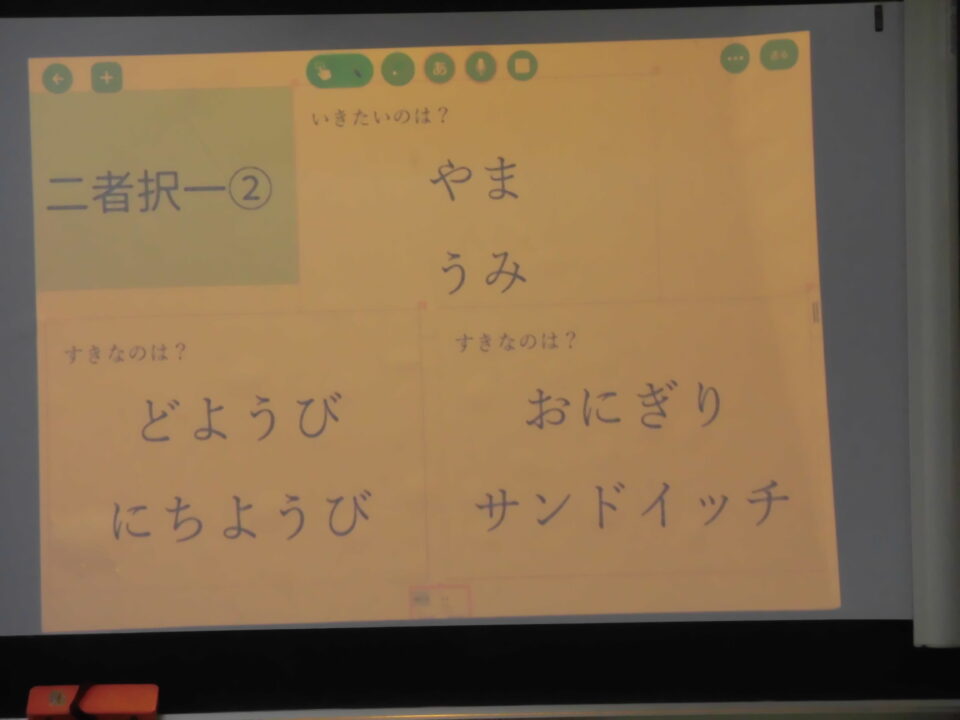 あ
二者択一②
いきたいのは？
やま
うみ
すきなのは？
どようび
にちようび
すきなのは？
おにぎり
サンドイッチ